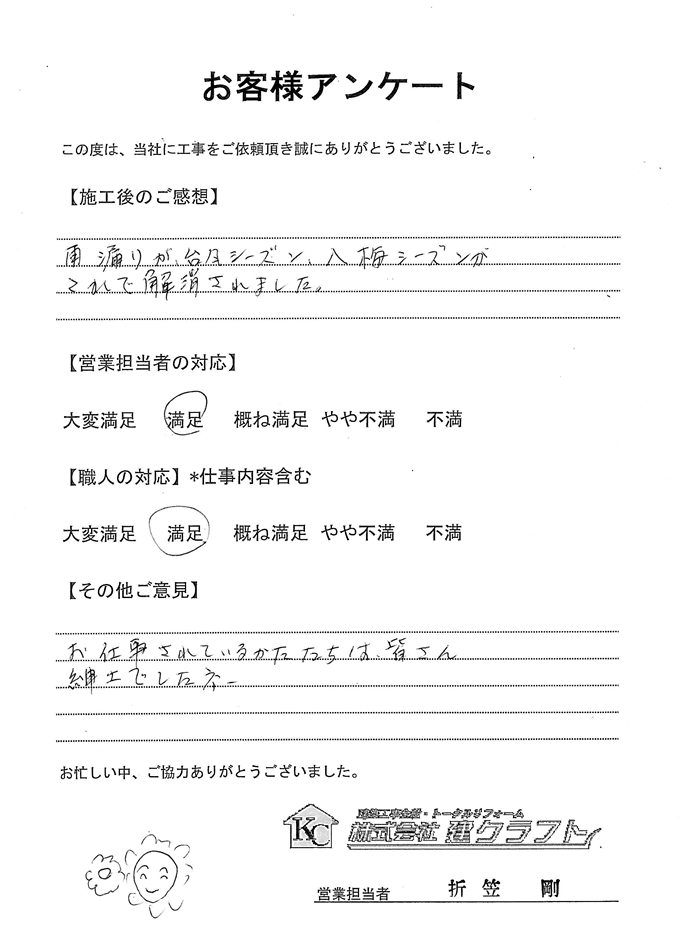 お客様アンケート
この度は、当社に工事をご依頼頂き誠にありがとうございました。
【施工後のご感想】
雨漏りが、台風シーズン、入梅シーズンが
これで解消されました。
【営業担当者の対応】
大変満足 満足 概ね満足 やや不満 不満
【職人の対応】*仕事内容含む
大変満足 満足 概ね満足 やや不満 不満
【その他ご意見】
お仕事されているかたたちは、皆さん
紳士でしたネー
お忙しい中、ご協力ありがとうございました。
建築工事全般・トータルリフォーム
KC 株式会社 建クラフト
営業担当者 折笠 剛